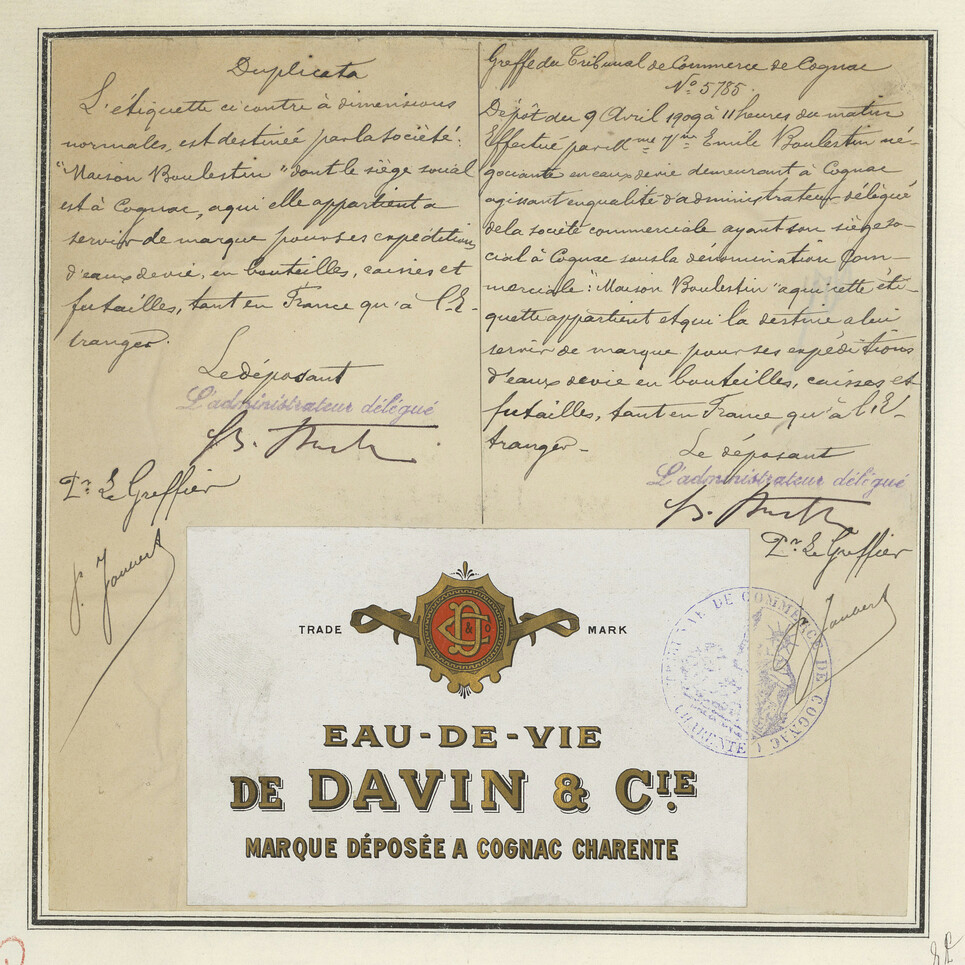 Duplicata
L'étiquette ci contre à dimensions
normales, est destinée par la société:
"Maison Boulestin" dont le siège social
est à Cognac, a qui elle appartient a
servir de marque pour ses expéditions
d'eaux devie, en bouteilles, caisses et
futailles, tant en France qu'à l'E-
tranger.
Le déposant
L'administrateur délégué
Pr Le Greffier
Greffe du Tribunal de Commerce de Cognac
No 5785.
Dépôt du 9 Avril 1909 à 11 heures du matin
Effectué par Mme Vve Emile Boulestin né-
gociante en eaux devie demeurant à Cognac
agissant en qualité d'administrateur délégué
de la société commerciale ayant son siège so-
cial à Cognac sous la dénomination Com-
merciale: "Maison Boulestin" a qui cette éti-
quette appartient et qui la destine a lui
servir de marque pour ses expéditions
d'eaux devie en bouteilles, caisses et
futailles, tant en France qu'à l'E-
tranger-
Le déposant
L'administrateur délégué
Pr Le Greffier
TRADE MARK
D & Co
EAU-DE-VIE
DE DAVIN & CIE
MARQUE DÉPOSÉE A COGNAC CHARENTE
TRIBUNAL DE COMMERCE DE COGNAC
CHARENTE